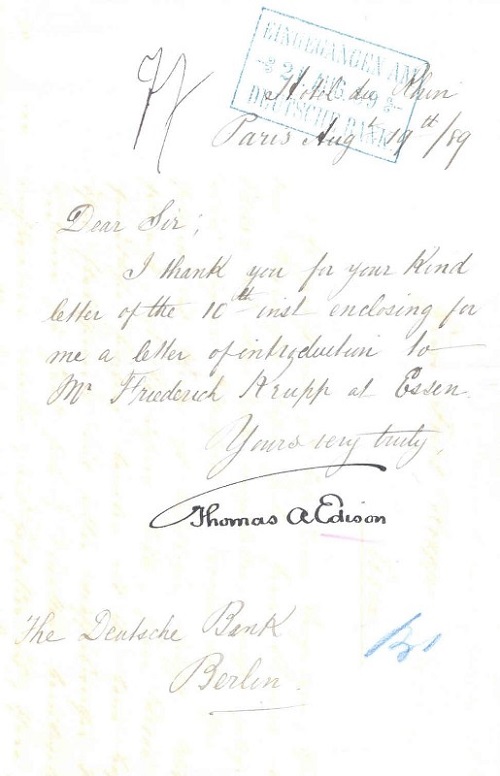 EINGEGANGEN AM
DEUTSCHE BANK
Hotel du Rhin
Paris Augt 19th/89
Dear Sir;
I thank you for your Kind
letter of the 10th inst enclosing for
me a letter of introduction to
Mr Friederich Krupp at Essen.
Yours very truly,
Thomas A Edison
The Deutsche Bank
Berlin.